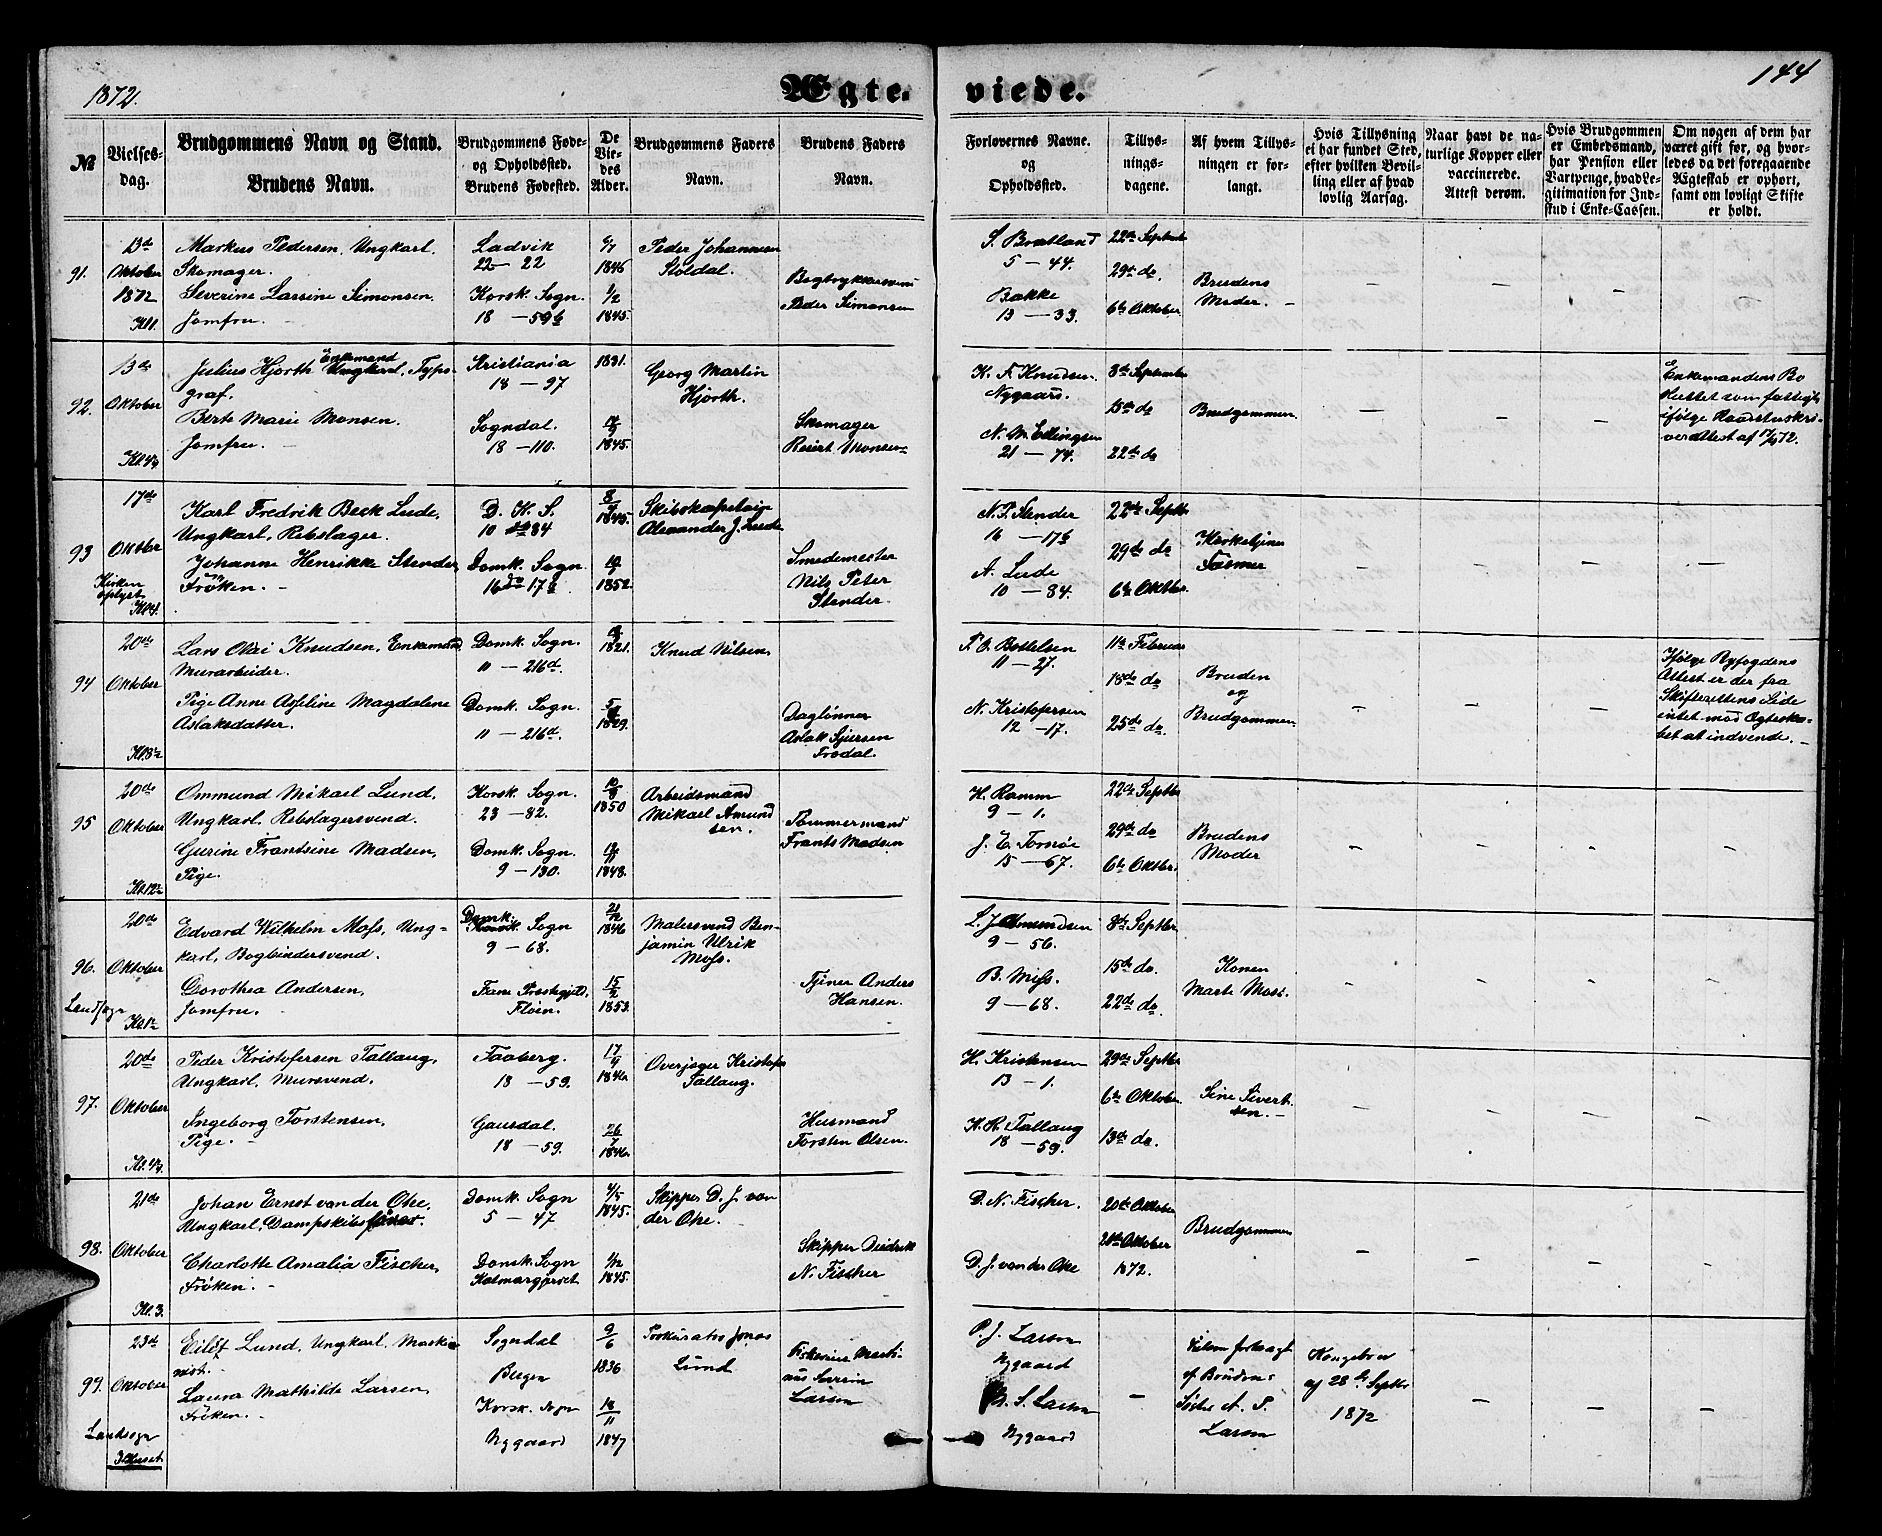 1872.
Ægte.
viede.
144
No
Vielses-
dag.
Brudgommens Navn og Stand.
Brudens Navn.
Brudgommens Føde-
og Opholdssted.
Brudens Fødested.
De
Vie-
des
Alder.
Brudgommens Faders
Navn.
Brudens Faders
Navn.
Forlovernes Navne.
og
Opholdssted.
Tillys-
nings-
dagene.
Af hvem Tillys-
ningen er for-
langt.
Hvis Tillysning
ei har fundet Sted,
efter hvilken Bevil-
ling eller af hvad
lovlig Aarsag.
Naar havt de na-
turlige Kopper eller
vaccinerede.
Attest derom.
Hvis Brudgommen
er Embedsmand,
har Pension eller
Vartpenge, hvad Le-
gitimation for Ind-
skud i Enke-Cassen.
Om nogen af dem har
været gift før, og hvor-
ledes da det foregaaende
Ægteskab er ophørt,
samt om lovligt Skifte
er holdt.
91.
13de
Oktober
1872
Markus Pedersen, Ungkarl.
Skomager.
Severine Larsine Simonsen.
Jomfru. -
Ladvik
22 - 22
Korsk. Sogn.
18 - 59b
6/7
1846
1/2
1845.
Peder Johannesen
Stoldal.
Bogtrykkersvend
Peder Simonsen
S. Bratland
5 - 44.
Bakke
13 - 33.
22de September
29de do.
6te Oktober
Brudens
Moder. -
92.
13de
Oktober
Julius Hjorth Enkemand Ungkarl, Typo-
graf.
Berte Marie Monsen.
Jomfru. -
Kristiania
18 - 97
Sogndal.
18 - 110.
1831.
1845.
Georg Martin
Hjorth.
Skomager
Reiert Monsen
K. F. Knudsen
Nygaard.
N. M. Ellingsen
21 - 74.
8de September
15de do
22de do
Brudgommen
Enkemandens Bo
sluttet som fattigt
ifølge Raadstuskri-
verattest af 17/9 72.
93
17de
Oktober
Kirken
oplyst
Karl Fredrik Beck Lude,
Ungkarl, Rebslager.
Johanne Henrikke Stender
Frøken. -
D. K. S.
10 do 84
Domk. Sogn.
16 do 17b
1845.
1852.
Skibskaptein
Alexander J. Lude
Smedemester
Nils Peter
Stender.
N. P. Stender
16 - 17b
A. Lude
10 - 84.
22de Septbr
29de do
6te Oktbr.
Kirketjener
Fasmer
94
20de
Oktober
Lars Olai Knudsen, Enkemand
Murarbeider.
Pige Anne Asseline Magdalene
Aslaksdatter.
Domk. Sogn.
11 - 216d.
Domk. Sogn.
11 - 216d.
1821.
1829.
Knud Nilsen,
Daglønner
Aslak Sjursen
Frodal.
T. O. Bottelsen
11 - 27.
N. Kristofersen
12 - 17.
11te Februar
18de do
25de do.
Bruden
og
Brudgommen
Ifølge Byfogdens
Attest er der fra
Skifterettens Side
intet mod Ægteska-
bet at indvende. -
95
20de
Oktober
Ommund Mikael Lund,
Ungkarl, Rebslagersvend.
Gurine Frantsine Madsen,
Pige.
Korsk. Sogn.
23 - 82.
Domk. Sogn.
9 - 130.
10/8
1850
1848.
Arbeidsmand
Mikael Amund
sen.
Tømmermand
Frants Madsen
H. Ramm
9 - 1.
J. E. Tornøe
15 - 67.
22de Septbr
29de do
6te Oktbr.
Brudens
Moder
96.
20de
Oktober
Landsogn
Edvard Wilhelm Moss, Ung-
karl, Bogbindersvend.
Dorothea Andersen,
Jomfru. -
Domk.
Korsk. Sogn
9 - 68.
Fane Præstegjeld,
Fløien.
21/12
1846
15/2
1853.
Malersvend Ben-
jamin Ulrik
Moss.
Tjener Anders
Hansen.
L. J. Amundsen
9 - 56.
B. Moss.
9 - 68.
8de Septbr
15de do.
22de do.
Konen
Marte Moss.
97.
20de
Oktober
Peder Kristofersen Tallaug,
Ungkarl, Mursvend.
Ingeborg Torstensen,
Pige. -
Faaberg.
18 - 59.
Gausdal.
18 - 59.
17/4
1846.
26/7
1846.
Overjæger Kristofer
Tallaug.
Husmand
Torsten Olsen.
H. Kristensen
13 - 1.
K. K. Tallaug
18 - 59.
29de Septbr
6te Oktober
13de do.
Sine Sivert-
sen. -
98.
21de
Oktober
Kl. 3.
Johan Ernst van der Ohe,
Ungkarl, Dampskibsfører.
Charlotte Amalia Fischer,
Frøken. -
Domk. Sogn
5 - 47
Domk. Sogn
Holmargjerdet
4/5
1845.
1/12
1845.
Skipper D. J. van
der Ohe.
Skipper Diedrik
N. Fischer
D. N. Fischer.
D. J. van der Ohe
20de Oktober
20de Oktober
1872.
Brudgommen
99.
23de
Oktober
Landsogn
I Huset
Eilef Lund, Ungkarl, Maski-
nist. -
Laura Mathilde Larsen,
Frøken. -
Sogndal
Bergen
Korsk. Sogn
Nygaard
9/6
1836
18/11
1847
Prokurator Jonas
Lund
Larsen
P. J. Larsen
Nygaard
S. Larsen
Nygaard
-
Vielsen forlangt
af Brudens
Søster A. P.
Larsen
Kongebrev
af 28de Septbr
1872